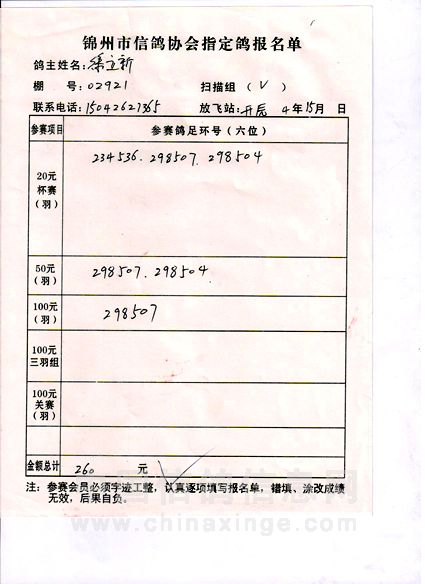 锦州市信鸽协会指定鸽报名单
鸽主姓名：徐立新
棚 号：02921 扫描组（√）
联系电话：15042621365 放飞站：开原 4年15月 日
参赛项目 参赛鸽足环号（六位）
20元
杯赛
（羽）
234536. 298507. 298504
50元
（羽）
298507. 298504
100元
（羽）
298507
100元
三羽组
100元
关赛
（羽）
金额总计 260 元
注：参赛会员必须字迹工整，认真逐项填写报名单，错填、涂改成绩
无效，后果自负。
www.chinaxinge.com